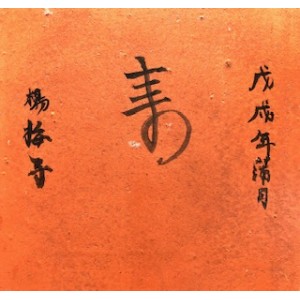 戊戌年蒲月
寿
楊梅子